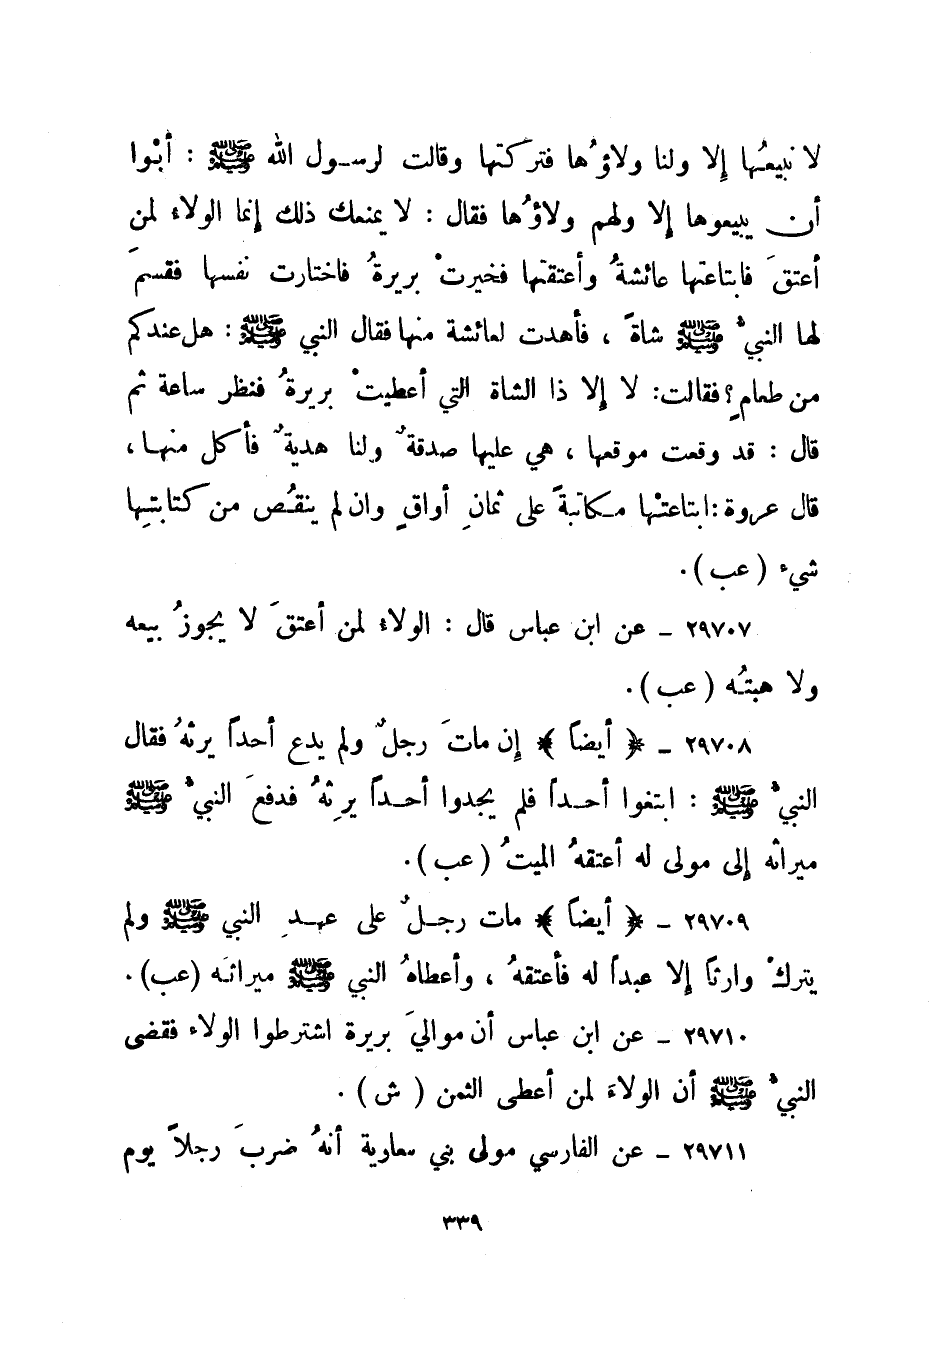 لا نبيعُها إلا ولنا ولاؤُها فتركتها وقالت لرسول الله ﷺ : أبْوا
أن يبيعوها إلا ولهم ولاؤُها فقال : لا يمنعك ذلك إنما الولاء لمن
أعتقَ فابتاعتها عائشةُ وأعتقتها فخيرتْ بريرةُ فاختارت نفسها فقسمَ
لها النبيُّ ﷺ شاةً ، فأهدت لعائشة منها فقال النبي ﷺ : هل عندكم
من طعامٍ؟ فقالت: لا إلا ذا الشاة التي أعطيتْ بريرةُ فنظر ساعة ثم
قال : قد وقعت موقعها ، هي عليها صدقةٌ ولنا هديةٌ فأكل منها ،
قال عروة : ابتاعتْها مكاتبةً على ثمانِ أواقٍ وان لم ينقُص من كتابتِها
شيء ( عب ) .
٢٩٧٠٧ ـ عن ابن عباس قال : الولاء لمن أعتقَ لا يجوزُ بيعه
ولا هبتُه ( عب ) .
٢٩٧٠٨ ـ ﴿ أيضاً ﴾ إن ماتَ رجلٌ ولم يدع أحداً يرثهُ فقال
النبيُّ ﷺ : ابتغوا أحداً فلم يجدوا أحداً يرِثهُ فدفعَ النبيُّ ﷺ
ميراثه إلى مولى له أعتقهُ الميتُ ( عب ) .
٢٩٧٠٩ ـ ﴿ أيضاً ﴾ مات رجلٌ على عهدِ النبي ﷺ ولم
يتركْ وارثاً إلا عبداً له فأعتقهُ ، وأعطاهُ النبي ﷺ ميراثه (عب) .
٢٩٧١٠ ـ عن ابن عباس أن مواليَ بريرة اشترطوا الولاء فقضى
النبيُّ ﷺ أن الولاءَ لمن أعطى الثمن ( ش ) .
٢٩٧١١ ـ عن الفارسي مولى بني معاوية أنهُ ضربَ رجلاً يوم
٣٣٩